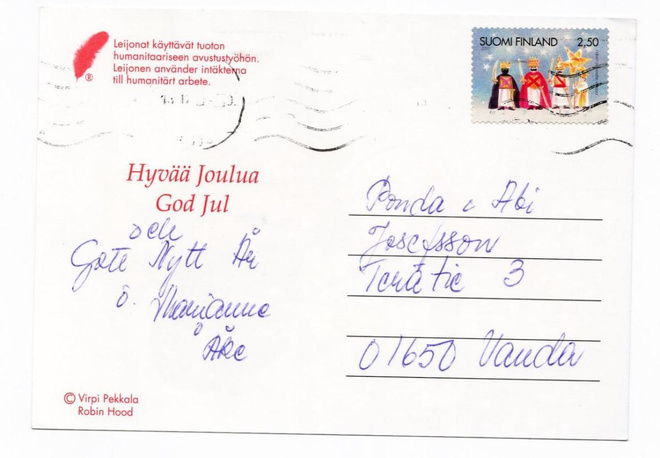 Leijonat käyttävät tuoton
humanitaariseen avustustyöhön.
Leijonen använder intäkterna
till humanitärt arbete.
®
SUOMI FINLAND 2,50
Hyvää Joulua
God Jul
och
Gott Nytt År
ö. Marianne
o
Åke
Ronda o Abi
Josefsson
3
01650 Vanda
© Virpi Pekkala
Robin Hood